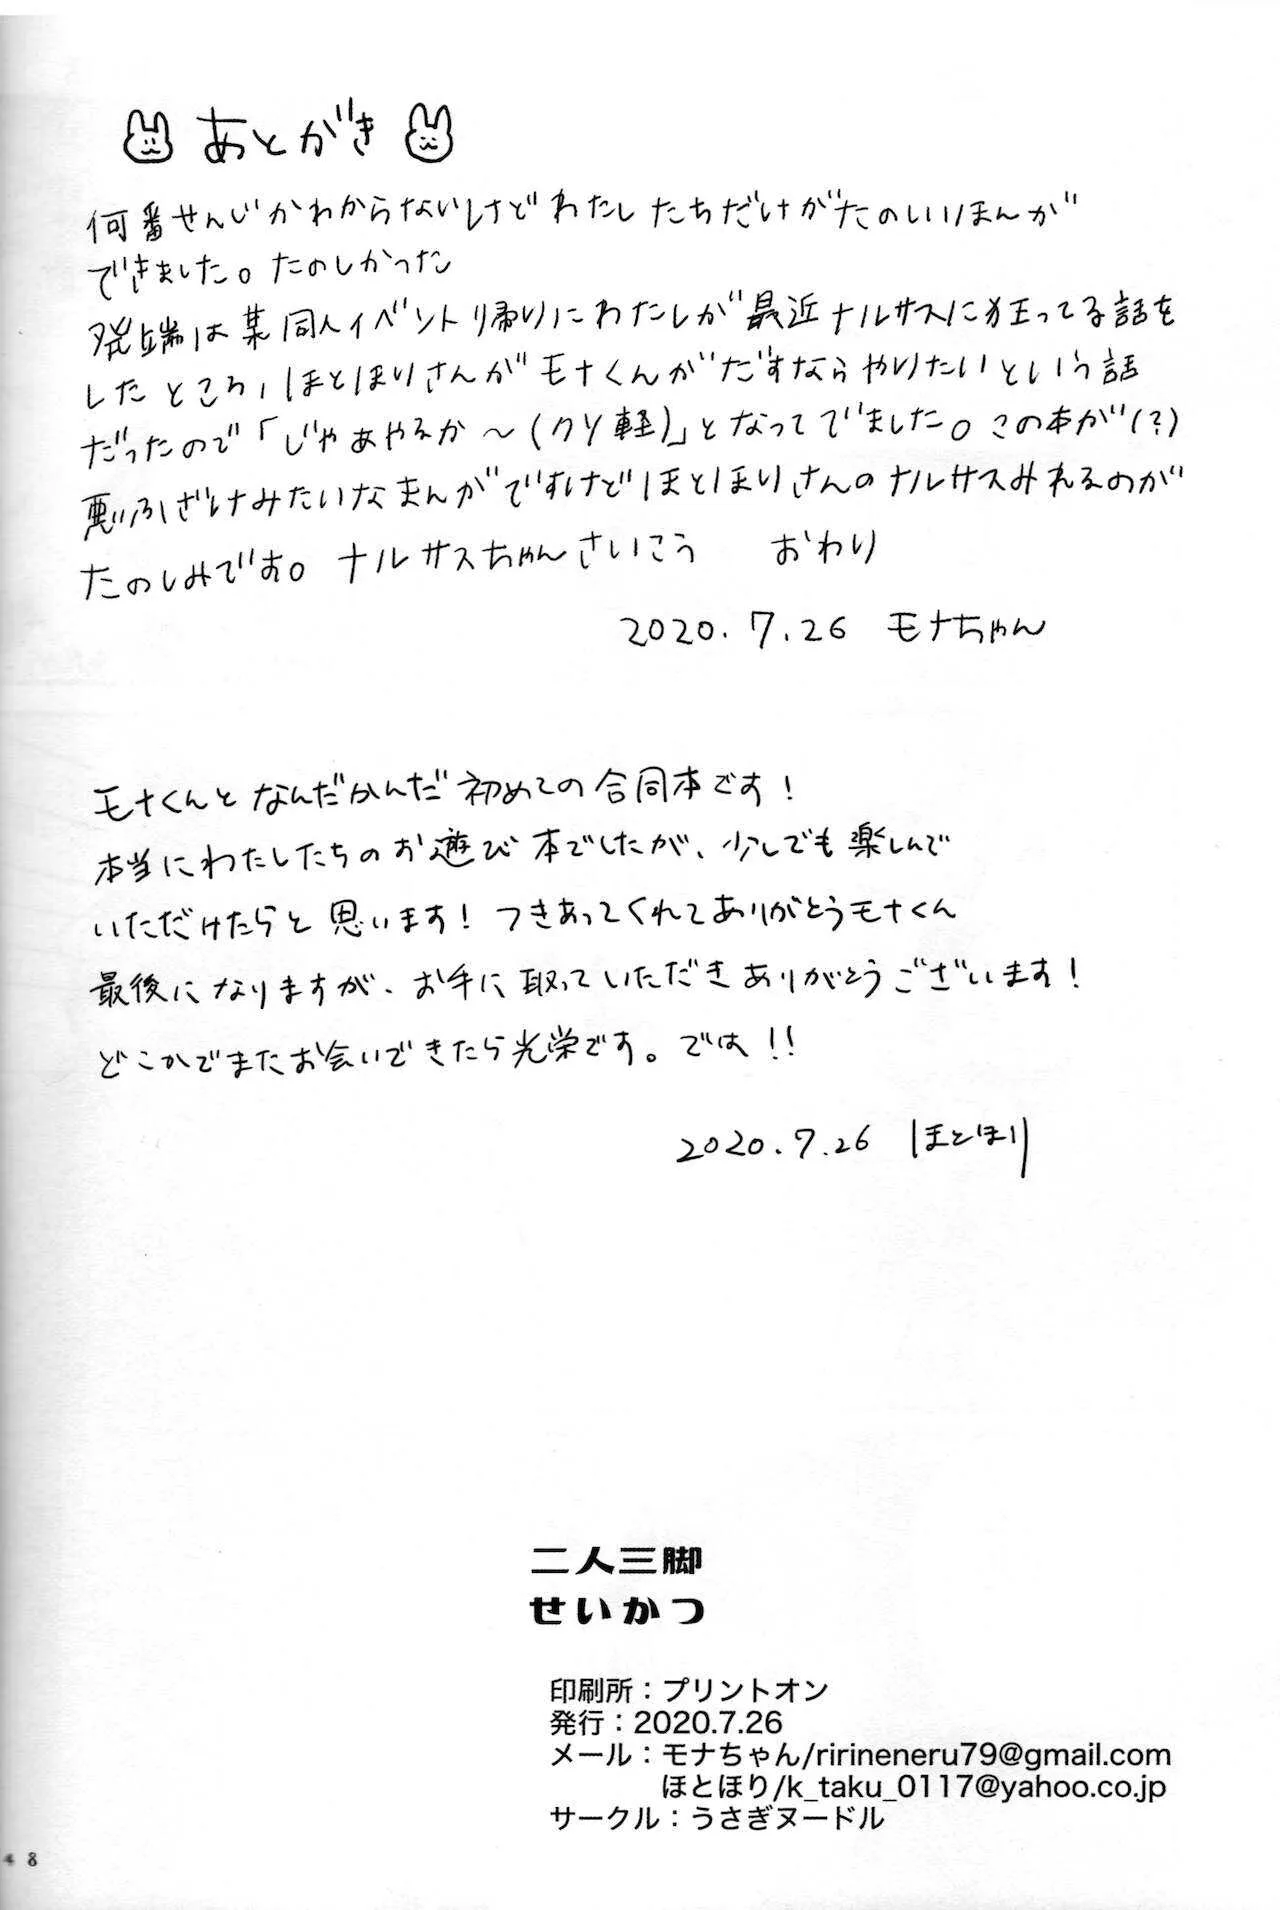 あとがき
何番せんじかわからないけどわたしたちだけがたのしいほんが
できました。たのしかった
発端は某同人イベント帰りにわたしが最近ナルサスに狂ってる話を
したところ、ほとほりさんがモナくんがだすならやりたいという話
だったので「じゃあやるか〜(クソ軽)」となってでました。この本が(?)
悪ふざけみたいなまんがですけどほとほりさんのナルサスみれるのが
たのしみです。ナルサスちゃんさいこう　おわり
2020.7.26 モナちゃん
モナくんとなんだかんだ初めての合同本です!
本当にわたしたちのお遊び本でしたが、少しでも楽しんで
いただけたらと思います! つきあってくれてありがとうモナくん
最後になりますが、お手に取っていただきありがとうございます!
どこかでまたお会いできたら光栄です。では!!
2020.7.26 ほとほり
二人三脚
せいかつ
印刷所：プリントオン
発行：2020.7.26
メール：モナちゃん/ririneneru79@gmail.com
ほとほり/k_taku_0117@yahoo.co.jp
サークル：うさぎヌードル
48